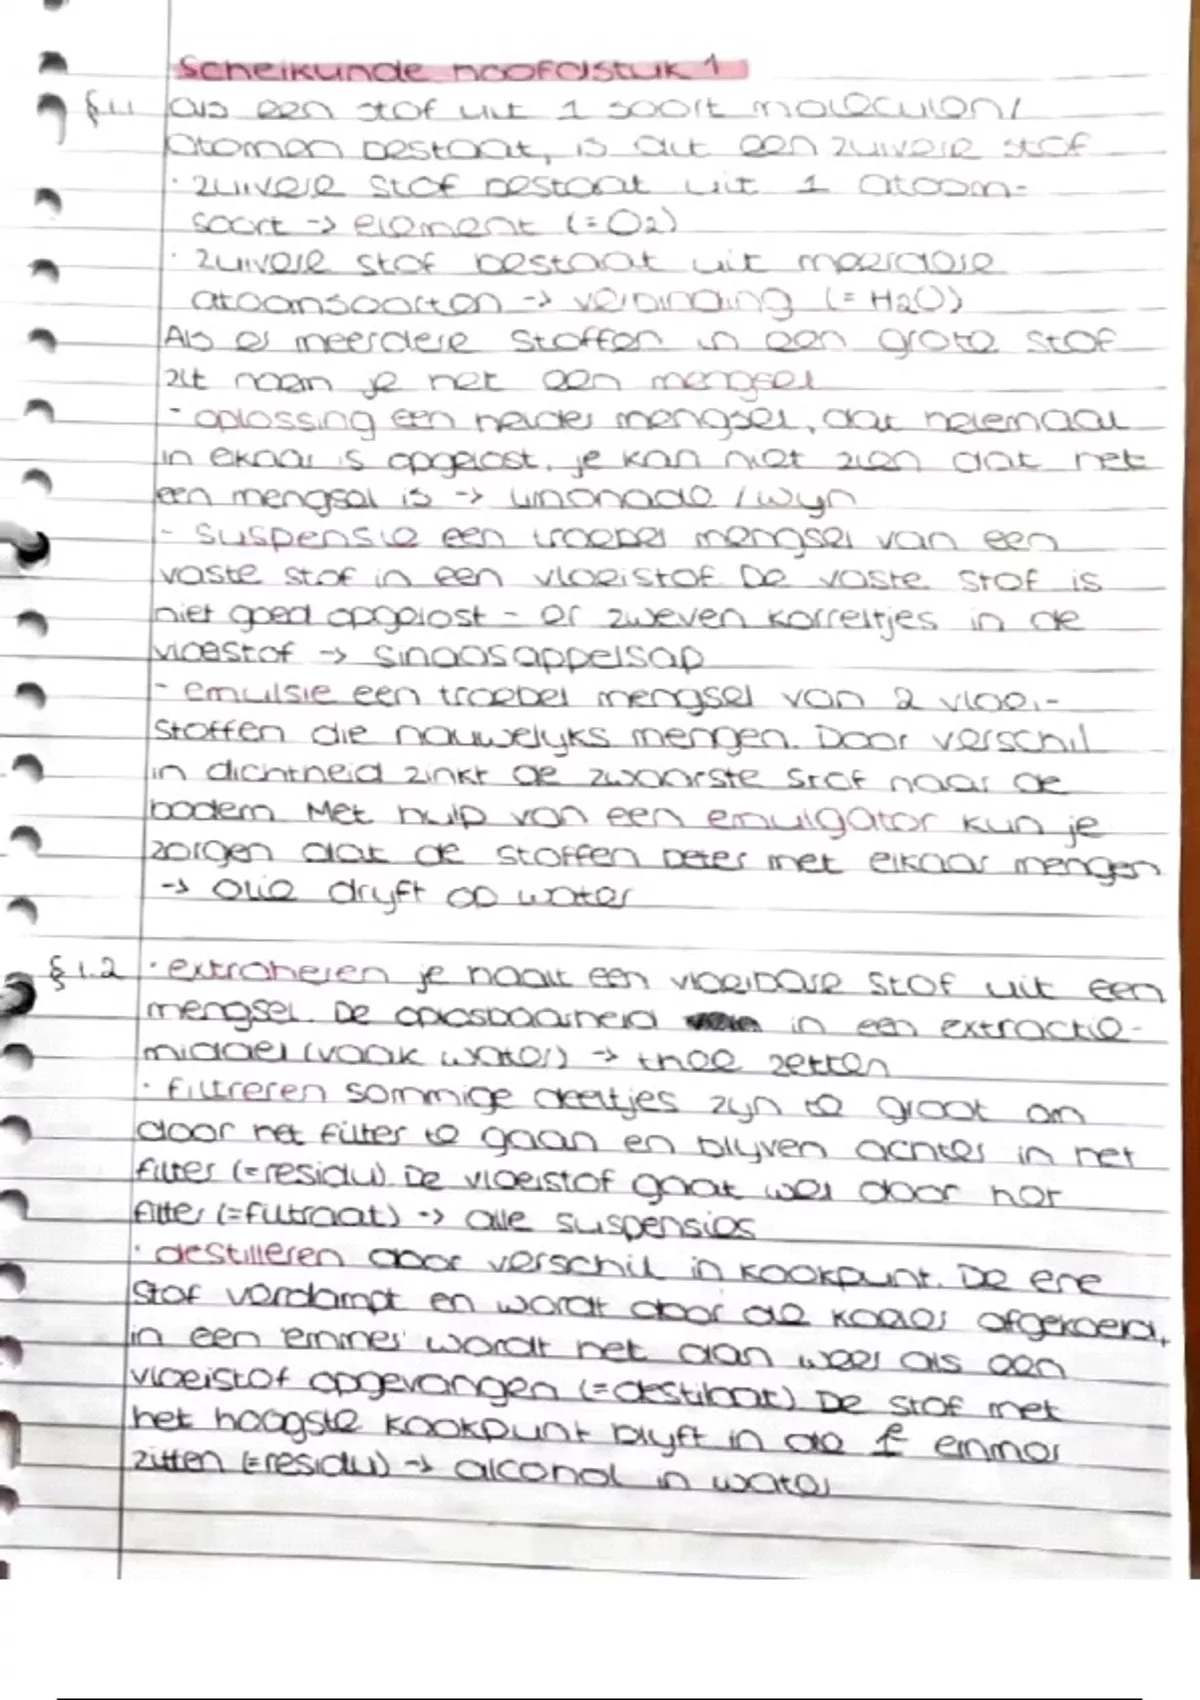 Scheikunde hoofdstuk 1
§1.1 als een stof uit 1 soort moleculen/
atomen bestaat, is dit een zuivere stof
· zuivere stof bestaat uit 1 atoom-
soort -> element (= O2)
· zuivere stof bestaat uit meerdere
atoomsoorten -> verbinding (= H2O)
Als er meerdere stoffen in een grote stof
zit noem je het een mengsel
- oplossing een helder mengsel, dat helemaal
in ekaar is opgelost. je kan niet zien dat het
een mengsel is -> limonade / wijn
- suspensie een troebel mengsel van een
vaste stof in een vloeistof. De vaste stof is
niet goed opgelost - er zweven korreltjes in de
vloestof -> sinaasappelsap
- emulsie een troebel mengsel van 2 vloei-
stoffen die nauwelijks mengen. Door verschil
in dichtheid zinkt de zwaarste stof naar de
bodem. Met hulp van een emulgator kun je
zorgen dat de stoffen beter met elkaar mengen
-> olie drijft op water
§1.2 · extraheren je haalt een vloeibare stof uit een
mengsel. De oplosbaarheid in een extractie-
middel (vaak water) -> thee zetten
· filtreren sommige deeltjes zijn te groot om
door het filter te gaan en blijven achter in het
filter (=residu). De vloeistof gaat wel door het
filter (=filtraat) -> alle suspensies
· destilleren door verschil in kookpunt. De ene
stof verdampt en wordt door de koeler afgekoeld,
in een emmer wordt het dan weer als een
vloeistof opgevangen (=destilaat) De stof met
het hoogste kookpunt blijft in de 1e emmer
zitten (=residu) -> alcohol in water